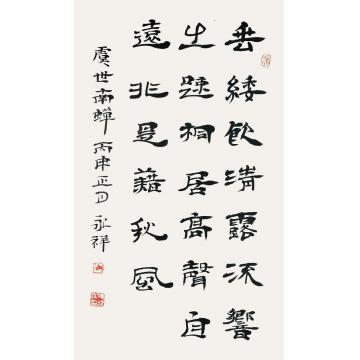 垂緌飲清露流響
出疏桐居高聲自
遠非是藉秋風
虞世南蟬 丙申正月 永祥